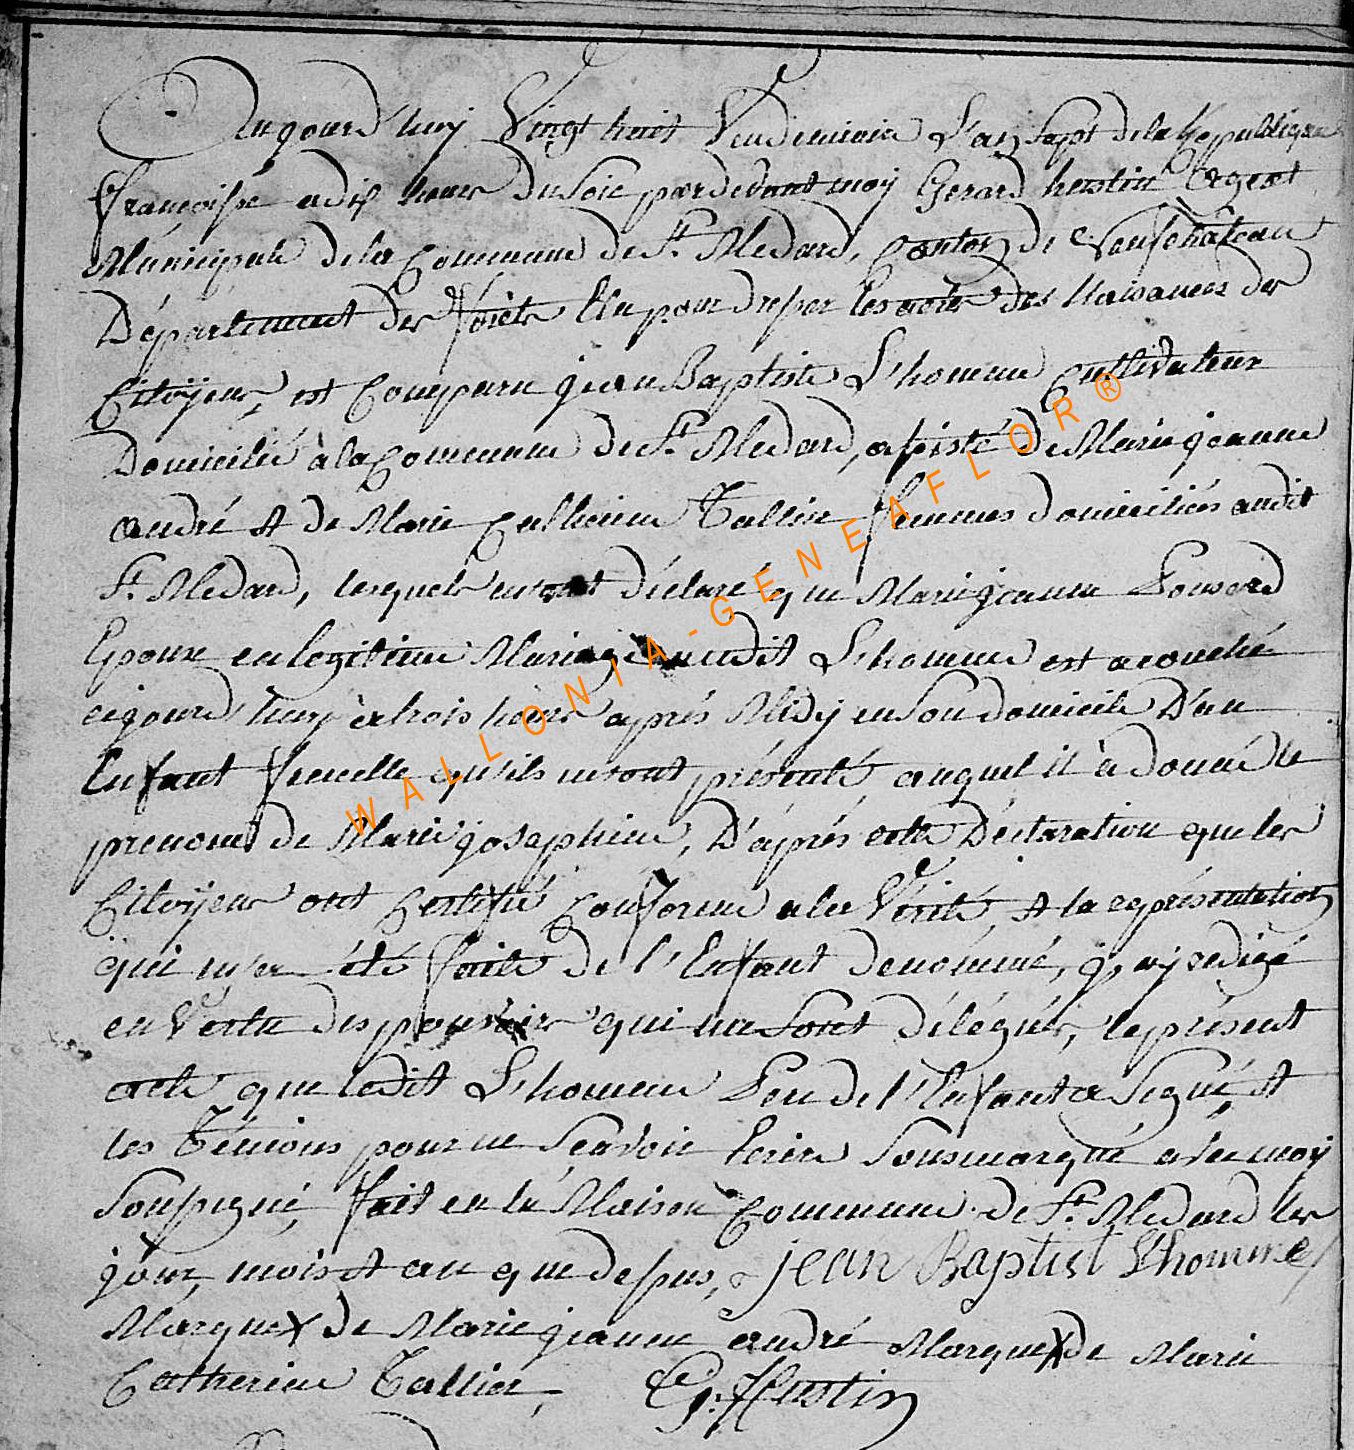 Augourd'huy Vingt huit Vendemiaire L'an Sept de la Republique
françoisse a dix heure du Soir pardevant moy Gerard hustin agent
Municipale de la Commune de St. Medard, Canton de Neufchateau
Département des forêts Elu pour dresser les actes des Naisances des
Citoÿens, est Comparu jean Baptiste L'homme Cultivateur
Domicilié à la Commune de St. Medard, assisté de Marie jeanne
andré et de Marie Catherine Tallier femmes domiciliées audit
St. Medard, lesquels mont déclaré que Marie jeanne
Epouse en legitime Mariage dudit L'homme est acouchée
cejourd'huy à trois heures après Midÿ en Son domicile D'un
Enfant femelle qu'ils mont présenté auquel il à donné le
prenom de Marie josephine, D'après cette Déclaration que les
Citoÿens ont Certifié Conforme a la Vérité, et la représentation
qui m'a été faite de l'Enfant denommé, j'ay redigé
en Vertu des pouvoirs qui me Sont délégués, le présent
acte que ledit L'homme Pere de l'Enfant a Signé, et
les Témoins pour ne Scavoir Ecrire Sousmarqué avec moy
Soussigné, fait en la Maison Commune de St. Medard les
jour, mois et an que dessus, jean Baptist L'homme
Marque X de Marie jeanne andré Marque X de Marie
Catherine Tallier, G. Hustin
WALLONIA-GENEAFLOR®